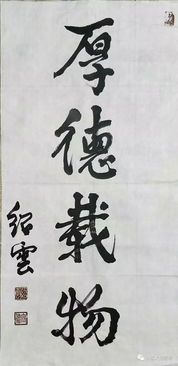 厚德载物
绍雲